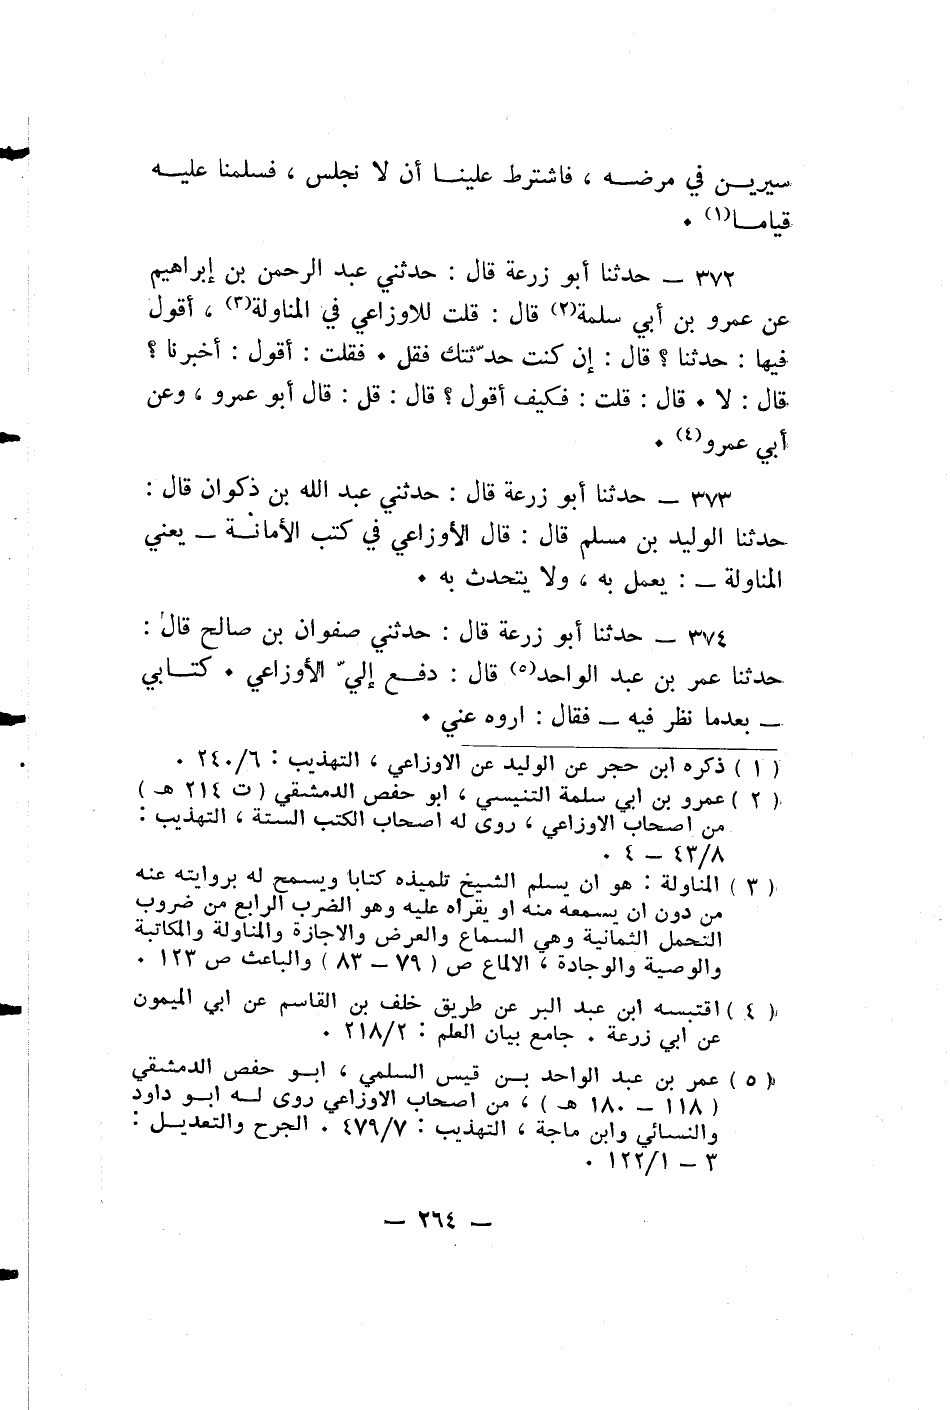 سيريـن في مرضـه ، فاشترط علينـا أن لا نجلس ، فسلمنا عليـه
قيامـا(١) ٠
٣٧٢ ـ حدثنا أبو زرعة قال : حدثني عبد الرحمن بن إبراهيم
عن عمرو بن أبي سلمة(٢) قال : قلت للاوزاعي في المناولة(٣) ، أقول
فيها : حدثنا ؟ قال : إن كنت حدّثتك فقل ٠ فقلت : أقول : أخبرنا ؟
قال : لا ٠ قال : قلت : فكيف أقول ؟ قال : قل : قال أبو عمرو ، وعن
أبي عمرو(٤) ٠
٣٧٣ ـ حدثنا أبو زرعة قال : حدثني عبد الله بن ذكوان قال :
حدثنا الوليد بن مسلم قال : قال الأوزاعي في كتب الأمانـة ـ يعني
المناولة ـ : يعمل به ، ولا يتحدث به ٠
٣٧٤ ـ حدثنا أبو زرعة قال : حدثني صفوان بن صالح قال :
حدثنا عمر بن عبد الواحد(٥) قال : دفـع إليّ الأوزاعي ٠ كتـابي
ـ بعدما نظر فيه ـ فقال : اروه عني ٠
( ١ ) ذكره ابن حجر عن الوليد عن الاوزاعي ، التهذيب : ٢٤٠/٦ ٠
( ٢ ) عمرو بن ابي سلمة التنيسي ، ابو حفص الدمشقي ( ت ٢١٤ هـ )
من اصحاب الاوزاعي ، روى له اصحاب الكتب الستة ، التهذيب :
٤٣/٨ ـ ٤ ٠
( ٣ ) المناولة : هو ان يسلم الشيخ تلميذه كتابا ويسمح له بروايته عنه
من دون ان يسمعه منه او يقراه عليه وهو الضرب الرابع من ضروب
التحمل الثمانية وهي السماع والعرض والاجازة والمناولة والمكاتبة
والوصية والوجادة ، الالماع ص ( ٧٩ ـ ٨٣ ) والباعث ص ١٢٣ ٠
( ٤ ) اقتبسه ابن عبد البر عن طريق خلف بن القاسم عن ابي الميمون
عن ابي زرعة ٠ جامع بيان العلم : ٢١٨/٢ ٠
( ٥ ) عمر بن عبد الواحد بـن قيس السلمي ، ابـو حفص الدمشقي
( ١١٨ ـ ١٨٠ هـ ) ، من اصحاب الاوزاعي روى لـه ابـو داود
والنسائي وابن ماجة ، التهذيب : ٤٧٩/٧ ٠ الجرح والتعديـل :
٣ ـ ١٢٢/١ ٠
ـ ٢٦٤ ـ